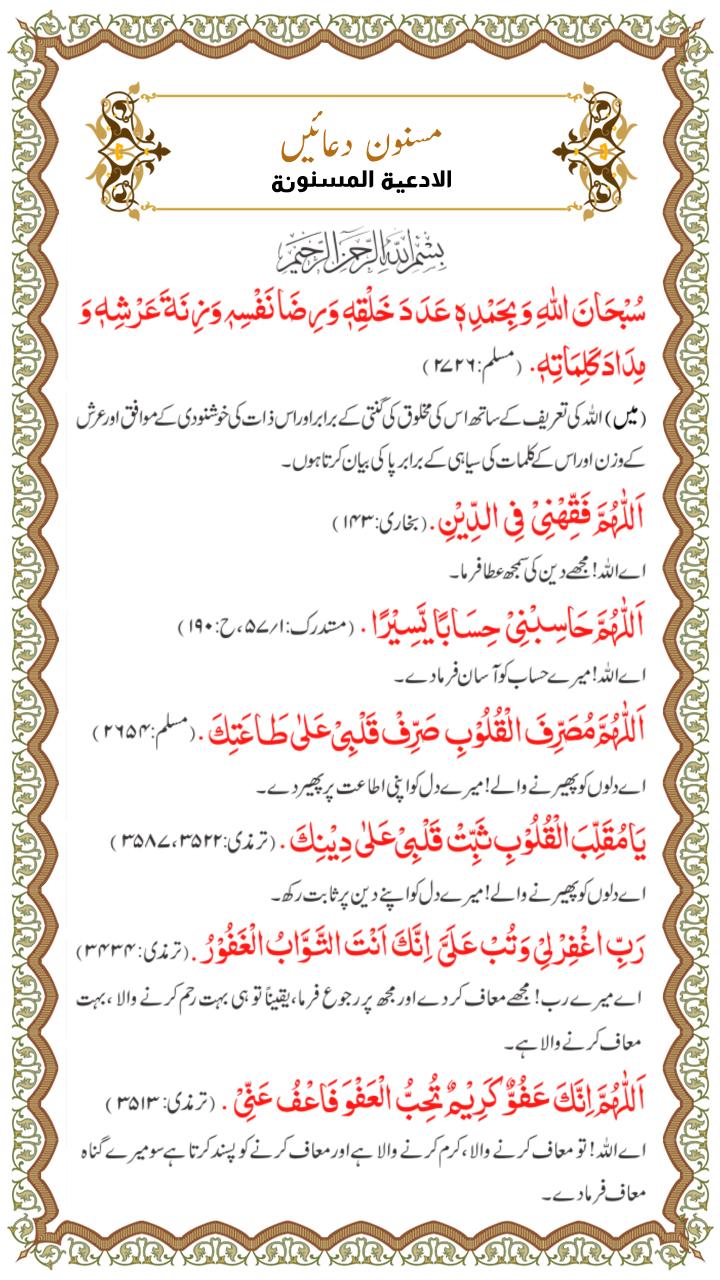 مسنون دعائیں
الادعية المسنونة
بِسْمِ اللهِ الرَّحْمٰنِ الرَّحِيْمِ
سُبْحَانَ اللهِ وَبِحَمْدِهٖ عَدَدَ خَلْقِهٖ وَرِضَا نَفْسِهٖ وَزِنَةَ عَرْشِهٖ وَ
مِدَادَ كَلِمَاتِهٖ. (مسلم: ۲۷۲۶)
(میں) اللہ کی تعریف کے ساتھ اس کی مخلوق کی گنتی کے برابر اور اس ذات کی خوشنودی کے موافق اور عرش
کے وزن اور اس کے کلمات کی سیاہی کے برابر پاکی بیان کرتا ہوں۔
اَللّٰهُمَّ فَقِّهْنِيْ فِي الدِّيْنِ. (بخاری: ۱۴۳)
اے اللہ! مجھے دین کی سمجھ عطا فرما۔
اَللّٰهُمَّ حَاسِبْنِيْ حِسَابًا يَّسِيْرًا. (مستدرک: ۱/۵۷، ح: ۱۹۰)
اے اللہ! میرے حساب کو آسان فرما دے۔
اَللّٰهُمَّ مُصَرِّفَ الْقُلُوْبِ صَرِّفْ قَلْبِيْ عَلٰى طَاعَتِكَ. (مسلم: ۲۶۵۴)
اے دلوں کو پھیرنے والے! میرے دل کو اپنی اطاعت پر پھیر دے۔
يَا مُقَلِّبَ الْقُلُوْبِ ثَبِّتْ قَلْبِيْ عَلٰى دِيْنِكَ. (ترمذی: ۳۵۲۲، ۳۵۸۷)
اے دلوں کو پھیرنے والے! میرے دل کو اپنے دین پر ثابت رکھ۔
رَبِّ اغْفِرْ لِيْ وَتُبْ عَلَيَّ اِنَّكَ اَنْتَ التَّوَّابُ الْغَفُوْرُ. (ترمذی: ۳۴۳۴)
اے میرے رب! مجھے معاف کر دے اور مجھ پر رجوع فرما، یقیناً تو ہی بہت رحم کرنے والا، بہت
معاف کرنے والا ہے۔
اَللّٰهُمَّ اِنَّكَ عَفُوٌّ كَرِيْمٌ تُحِبُّ الْعَفْوَ فَاعْفُ عَنِّيْ. (ترمذی: ۳۵۱۳)
اے اللہ! تو معاف کرنے والا، کرم کرنے والا ہے اور معاف کرنے کو پسند کرتا ہے سو میرے گناہ
معاف فرما دے۔